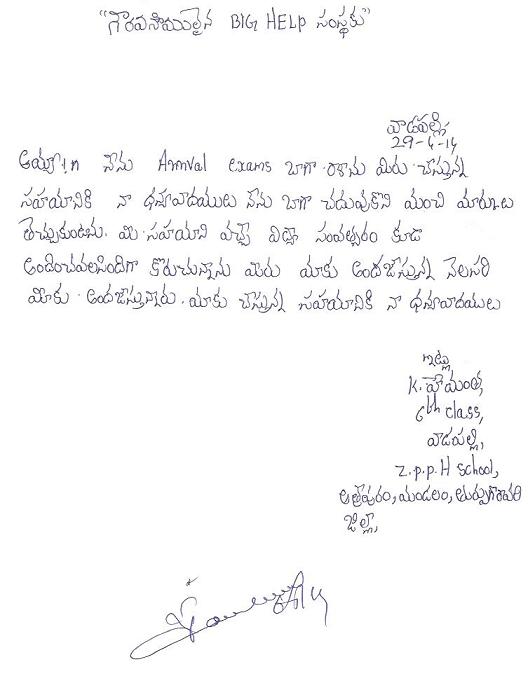 "గౌరవనీయులైన BIG HELP సంస్థకు"
వాడపల్లి,
29-4-14
నేను Annval exams బాగా రాశాను మీరు చేస్తున్న
సహయానికి నా ధన్యవాదములు నేను బాగా చదువుకొని మంచి మార్కులు
తెచ్చుకుంటను. మి సహయాని వచ్చే విద్యా సంవత్సరం కూడ
అందించవలసిందిగా కొరుచున్నాను మీరు మాకు అందజేస్తున్న
మీకు అందజేస్తున్నారు. మాకు చేస్తున్న సహయానికి నా ధన్యవాదములు
ఇట్లు
K. హేమంత్,
6th class,
వాడపల్లి,
Z.p.p.H school,
ఆత్రేపురం, మండలం, తుర్పుగొదావరి
జిల్లా,